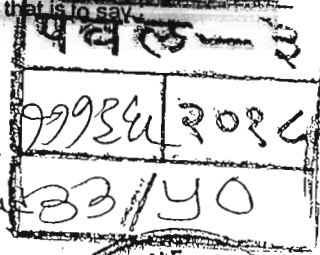 that is to say
पवल - ३
११९३६५ २०१८
33/५०